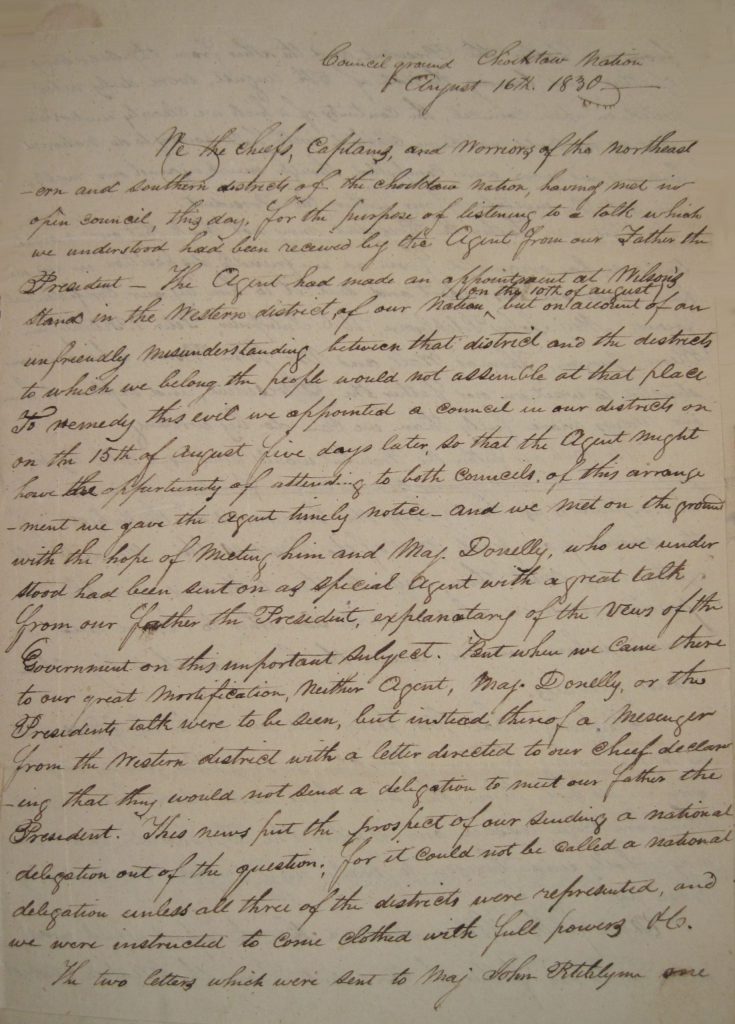 Council ground Chocktaw Nation
August 16th. 1830
We the Chiefs, Captains, and Worriors of the northeast
-ern and southern districts of the Chocktaw Nation, having met in
open council, this day, for the purpose of listening to a talk which
we understood had been received by the Agent from our Father the
President — The Agent had made an appointment at Wilson's
(on the 10th of august)
Stand in the Western district, of our Nation, but on account of an
unfriendly misunderstanding between that district and the districts
to which we belong the people would not assemble at that place
To remedy this evil we appointed a council in our districts on
on the 15th of August five days later, so that the Agent might
have the opportunity of attending to both councils. of this arrange
-ment we gave the agent timely notice — and we met on the ground
with the hope of Meeting him and Maj. Donelly, who we under
stood had been sent on as special Agent with a great talk
from our father the President, explanatary of the vews of the
Government on this important subject. But when we came there
to our great mortification, Neither Agent, Maj. Donelly, or the
Presidents talk were to be seen, but instead thereof a Mesenger
from the Western district with a letter directed to our chief declar
-ing that they would not send a delegation to meet our father the
President. This news put the prospect of our sending a national
delegation out of the question; for it could not be called a national
delegation unless all three of the districts were represented, and
we were instructed to come clothed with full powers &c.
The two letters which were sent to Maj John one